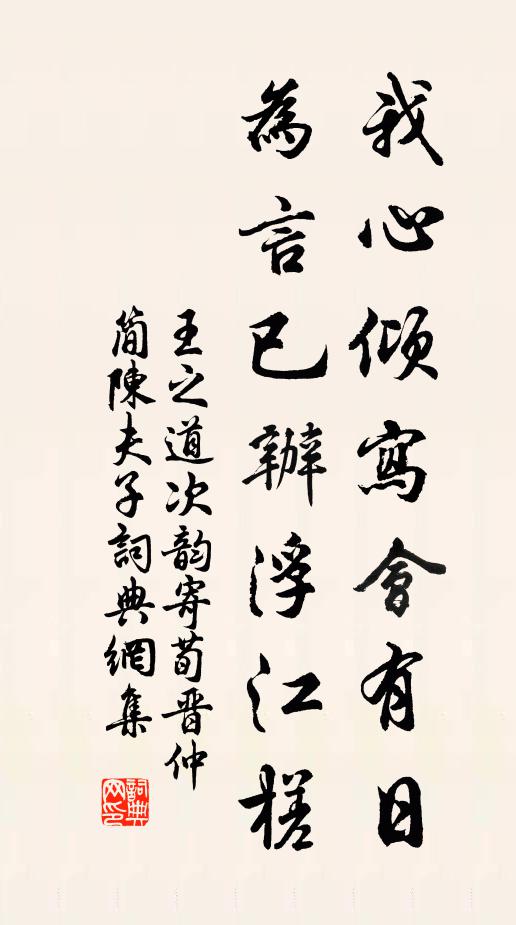 我心傾寫會有日
為言已辦浮江槎
王之道次韵寄荀晋仲
簡陳夫子詞典網集
詞典網印